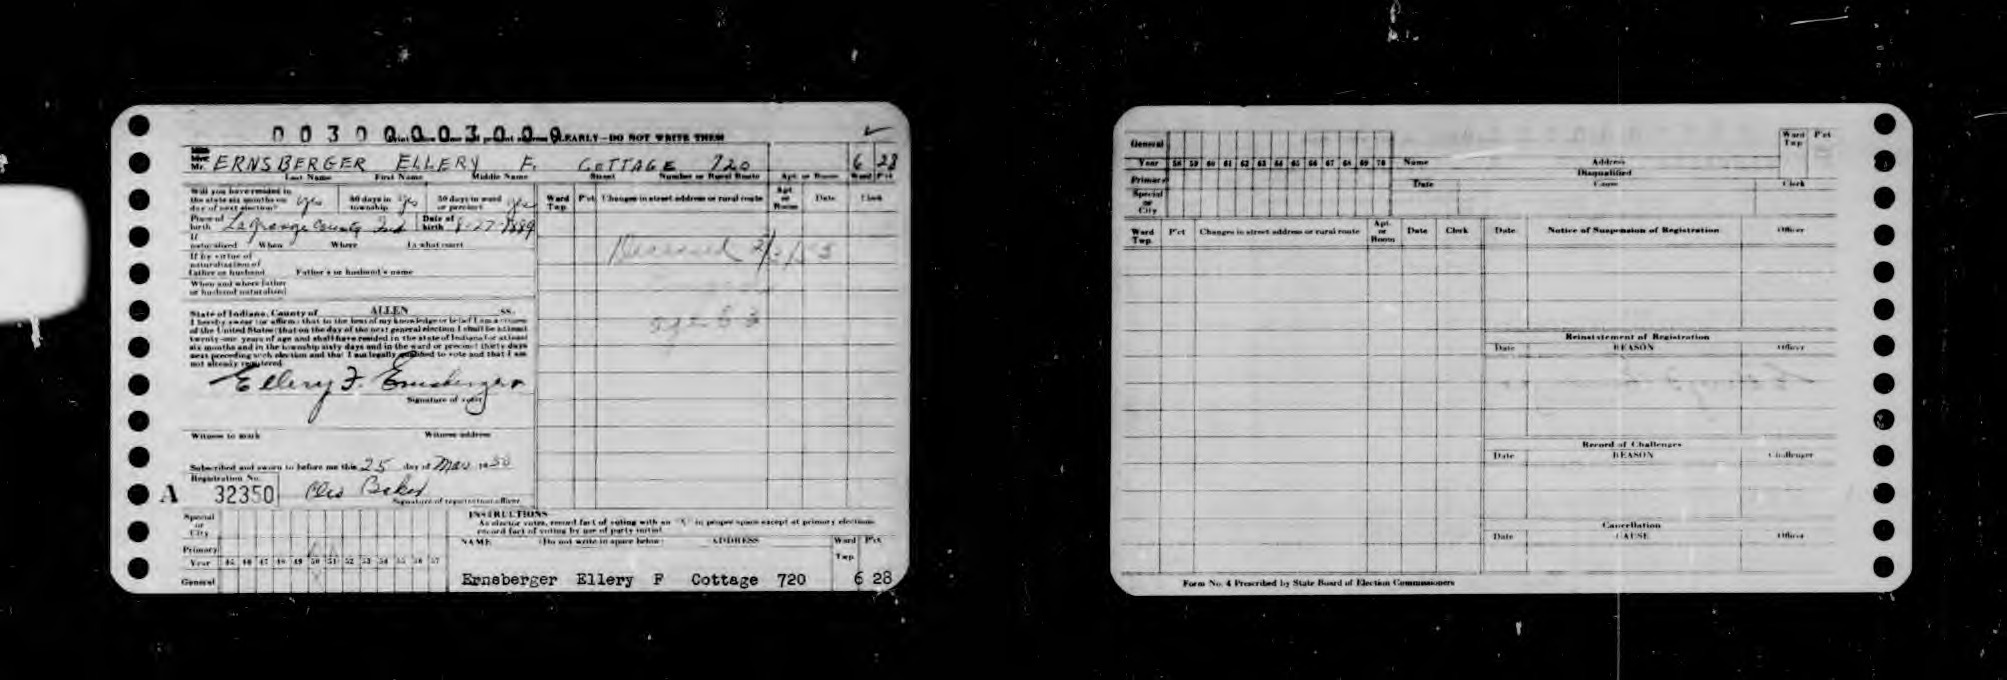 0 0 3 0 0 0 0 3 0 0 0 EARLY—DO NOT WRITE THEM
Mr. ERNSBERGER ELLERY F. COTTAGE 720 6 28
Last Name First Name Middle Name Street Number or Rural Route Apt. or Room Ward P'ct
Will you have resided in the state six months on day of next election? yes 60 days in township yes 30 days in ward or precinct yes
Place of birth LaGrange County Ind Date of birth 8-27-1889
If naturalized When Where In what court
If by virtue of naturalization of father or husband Father's or husband's name
When and where father or husband naturalized
State of Indiana, County of ALLEN ss.
I hereby swear (or affirm) that to the best of my knowledge or belief I am a citizen
of the United States; that on the day of the next general election I shall be at least
twenty-one years of age and shall have resided in the state of Indiana for at least
six months and in the township sixty days and in the ward or precinct thirty days
next preceding such election and that I am legally qualified to vote and that I am
not already registered.
Ellery F. Ernsberger
Signature of voter
Witness to mark Witness address
Subscribed and sworn to before me this 25 day of Mar 1950
Registration No.
A 32350 Cleo Baker
Signature of registration officer
Ward Twp. P'ct Changes in street address or rural route Apt. or Room Date Clerk
Deceased
age 63
Special or City
Primary
Year 45 46 47 48 49 50 51 52 53 54 55 56 57
General
INSTRUCTIONS
As elector votes, record fact of voting with an "X" in proper space except at primary elections
record fact of voting by use of party initial.
NAME (Do not write in space below) ADDRESS Ward Twp. P'ct
Ernsberger Ellery F Cottage 720 6 28
General
Year 58 59 60 61 62 63 64 65 66 67 68 69 70 Name Address Ward Twp P'ct
Primary Disqualified
Special or City Date Cause Clerk
Ward Twp. P'ct Changes in street address or rural route Apt. or Room Date Clerk Date Notice of Suspension of Registration Officer
Reinstatement of Registration
Date REASON Officer
Record of Challenges
Date REASON Challenger
Cancellation
Date CAUSE Officer
Form No. 4 Prescribed by State Board of Election Commissioners